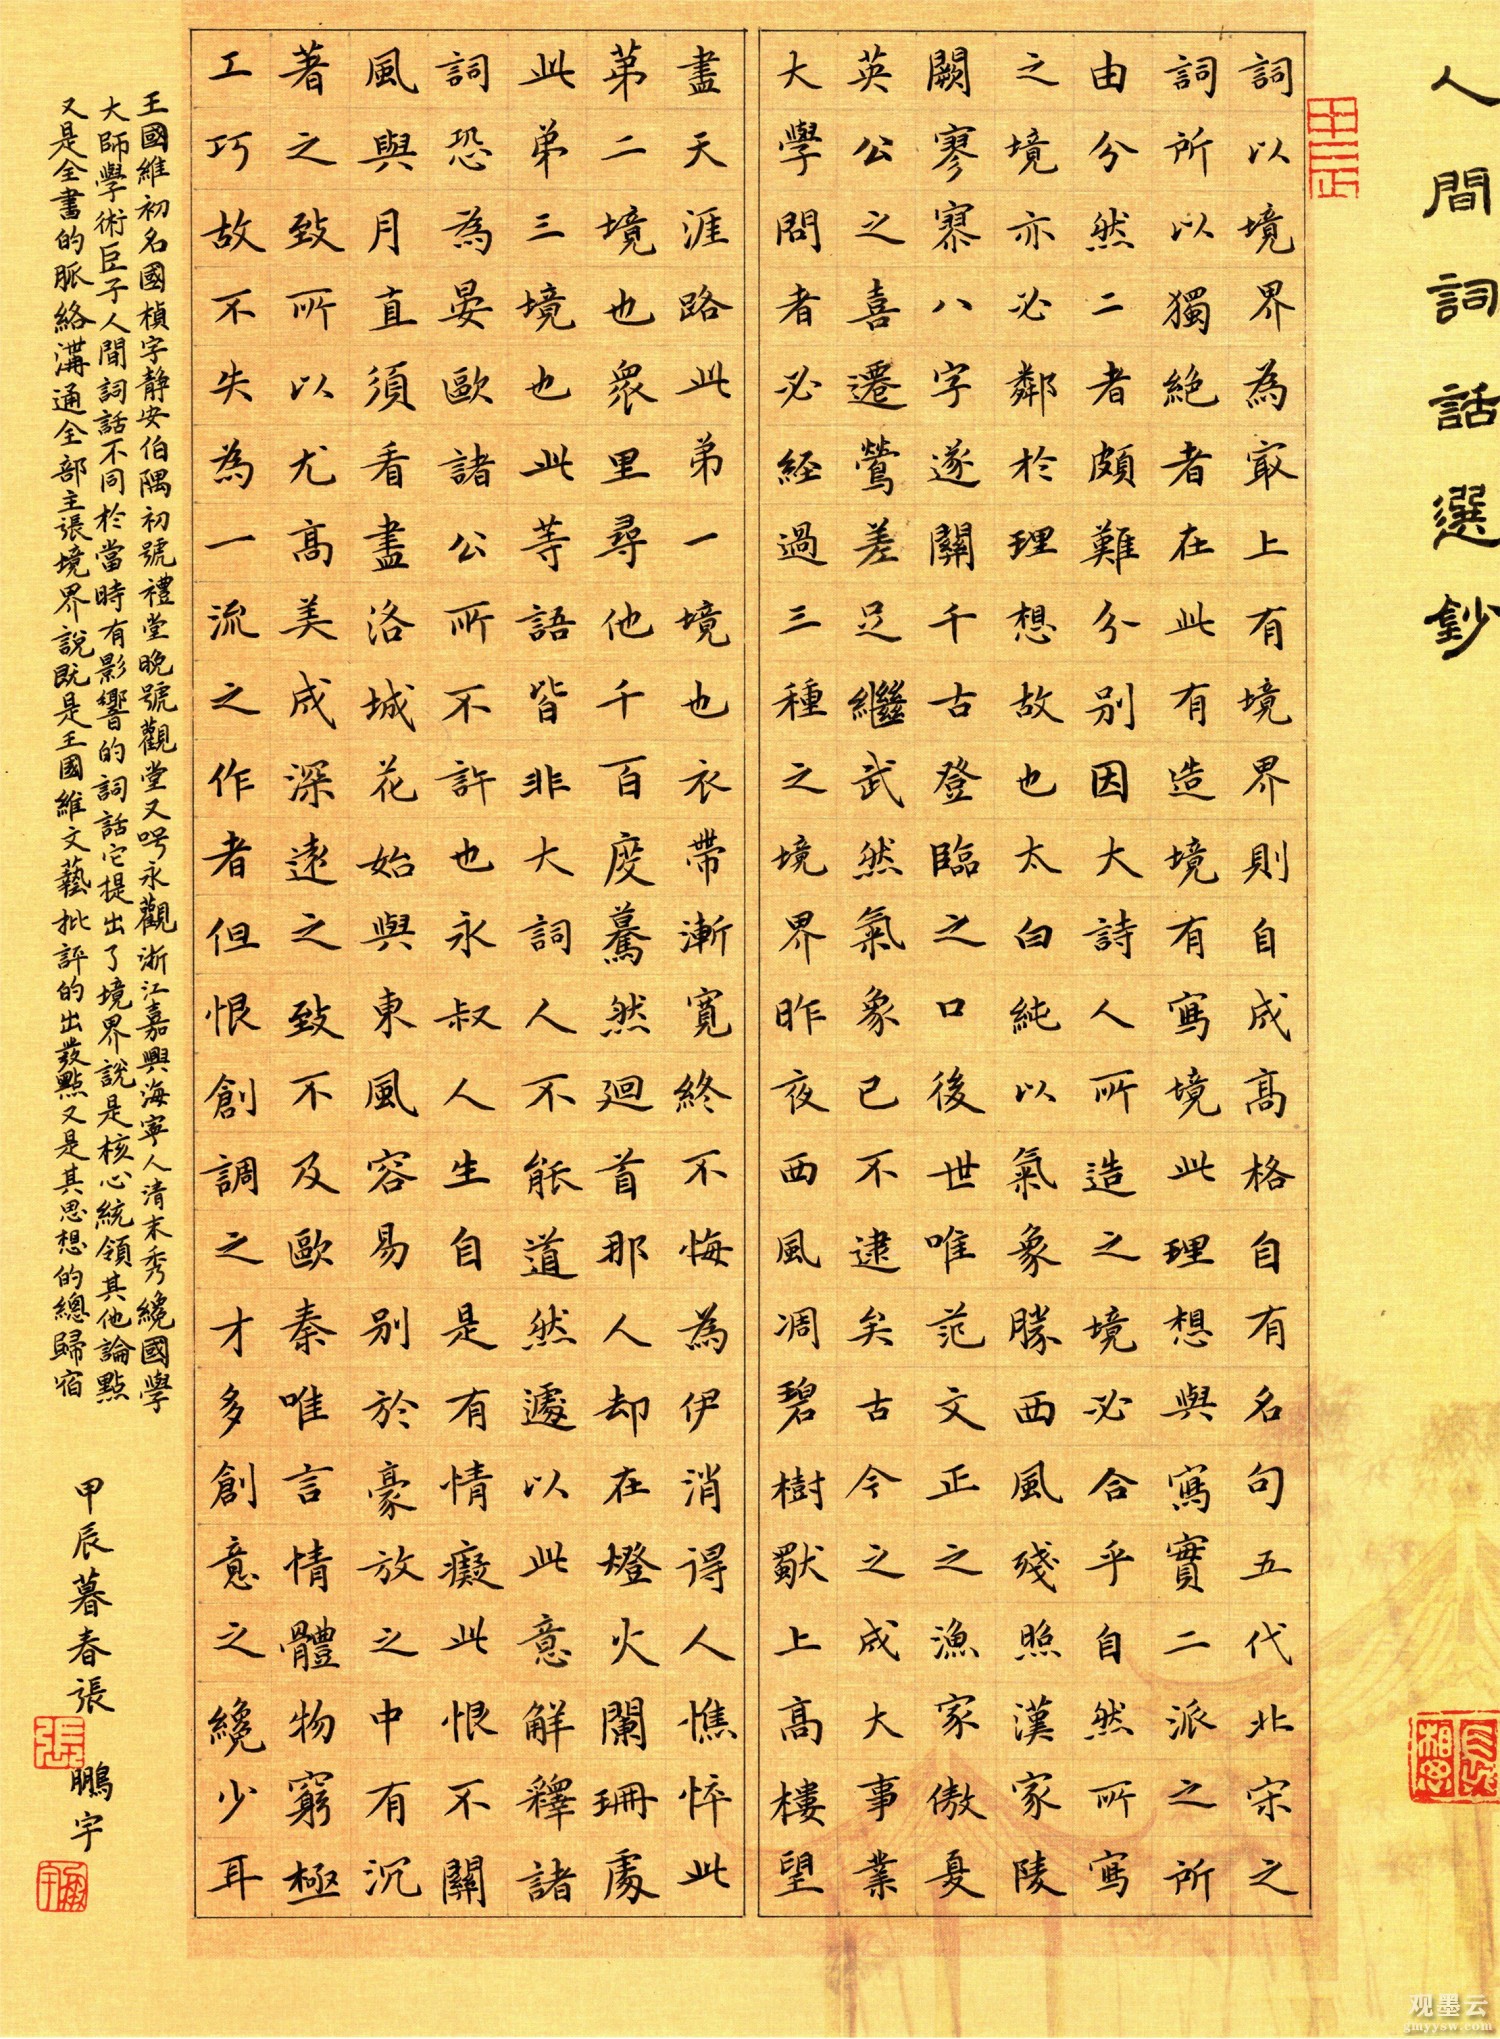 人間詞話選鈔
詞以境界為冣上有境界則自成高格自有名句五代北宋之
詞所以獨絶者在此有造境有寫境此理想與寫實二派之所
由分然二者頗難分别因大詩人所造之境必合乎自然所寫
之境亦必鄰於理想故也太白純以氣象勝西風殘照漢家陵
闕寥寥八字遂關千古登臨之口後世唯范文正之漁家傲夏
英公之喜遷鶯差足繼武然氣象已不逮矣古今之成大事業
大學問者必經過三種之境界昨夜西風凋碧樹獸上高樓望
盡天涯路此弟一境也衣帶漸寬終不悔為伊消得人憔悴此
弟二境也衆里尋他千百度驀然迴首那人却在燈火闌珊處
此弟三境也此等語皆非大詞人不能道然遽以此意解釋諸
詞恐為晏歐諸公所不許也永叔人生自是有情癡此恨不關
風與月直須看盡洛城花始與東風容易别於豪放之中有沉
著之致所以尤高美成深遠之致不及歐秦唯言情體物窮極
工巧故不失為一流之作者但恨創調之才多創意之纔少耳
王國維初名國楨字静安伯隅初號禮堂晚號觀堂又号永觀浙江嘉興海寧人清末秀纔國學
大師學術臣子人間詞話不同於當時有影響的詞話它提出了境界說是核心統領其他論點
又是全書的脈絡溝通全部主張境界說既是王國維文藝批評的出發點又是其思想的總歸宿
甲辰暮春張鵬宇
张
观墨云
gmyysw.com